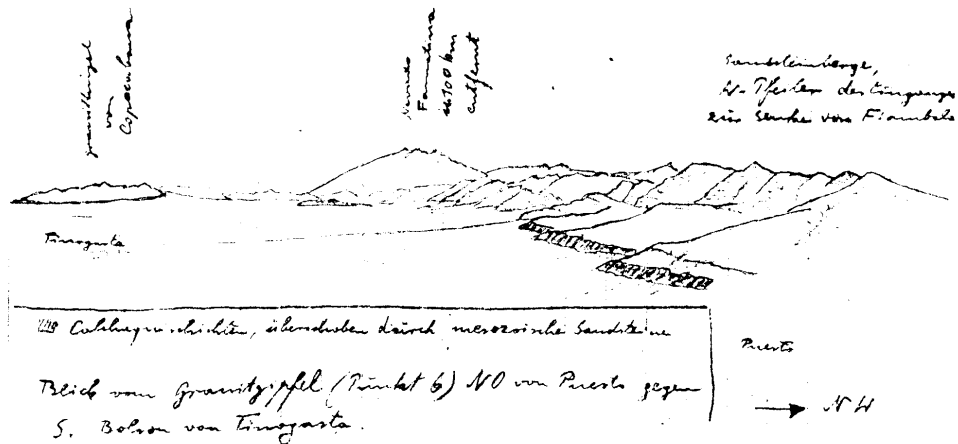 Granithügel
von
Copacabana
Nevado
Famatina
ca 100 km
entfernt
Sandsteinberge,
W-Pfeiler des Einganges
zur Senke von Fiambala
Tinogasta
Calchaquischichten, überschoben durch mesozoische Sandsteine
Puesto
Blick vom Granitgipfel (Punkt 6) NO von Puesto gegen
S. Bolson von Tinogasta.
→ NW